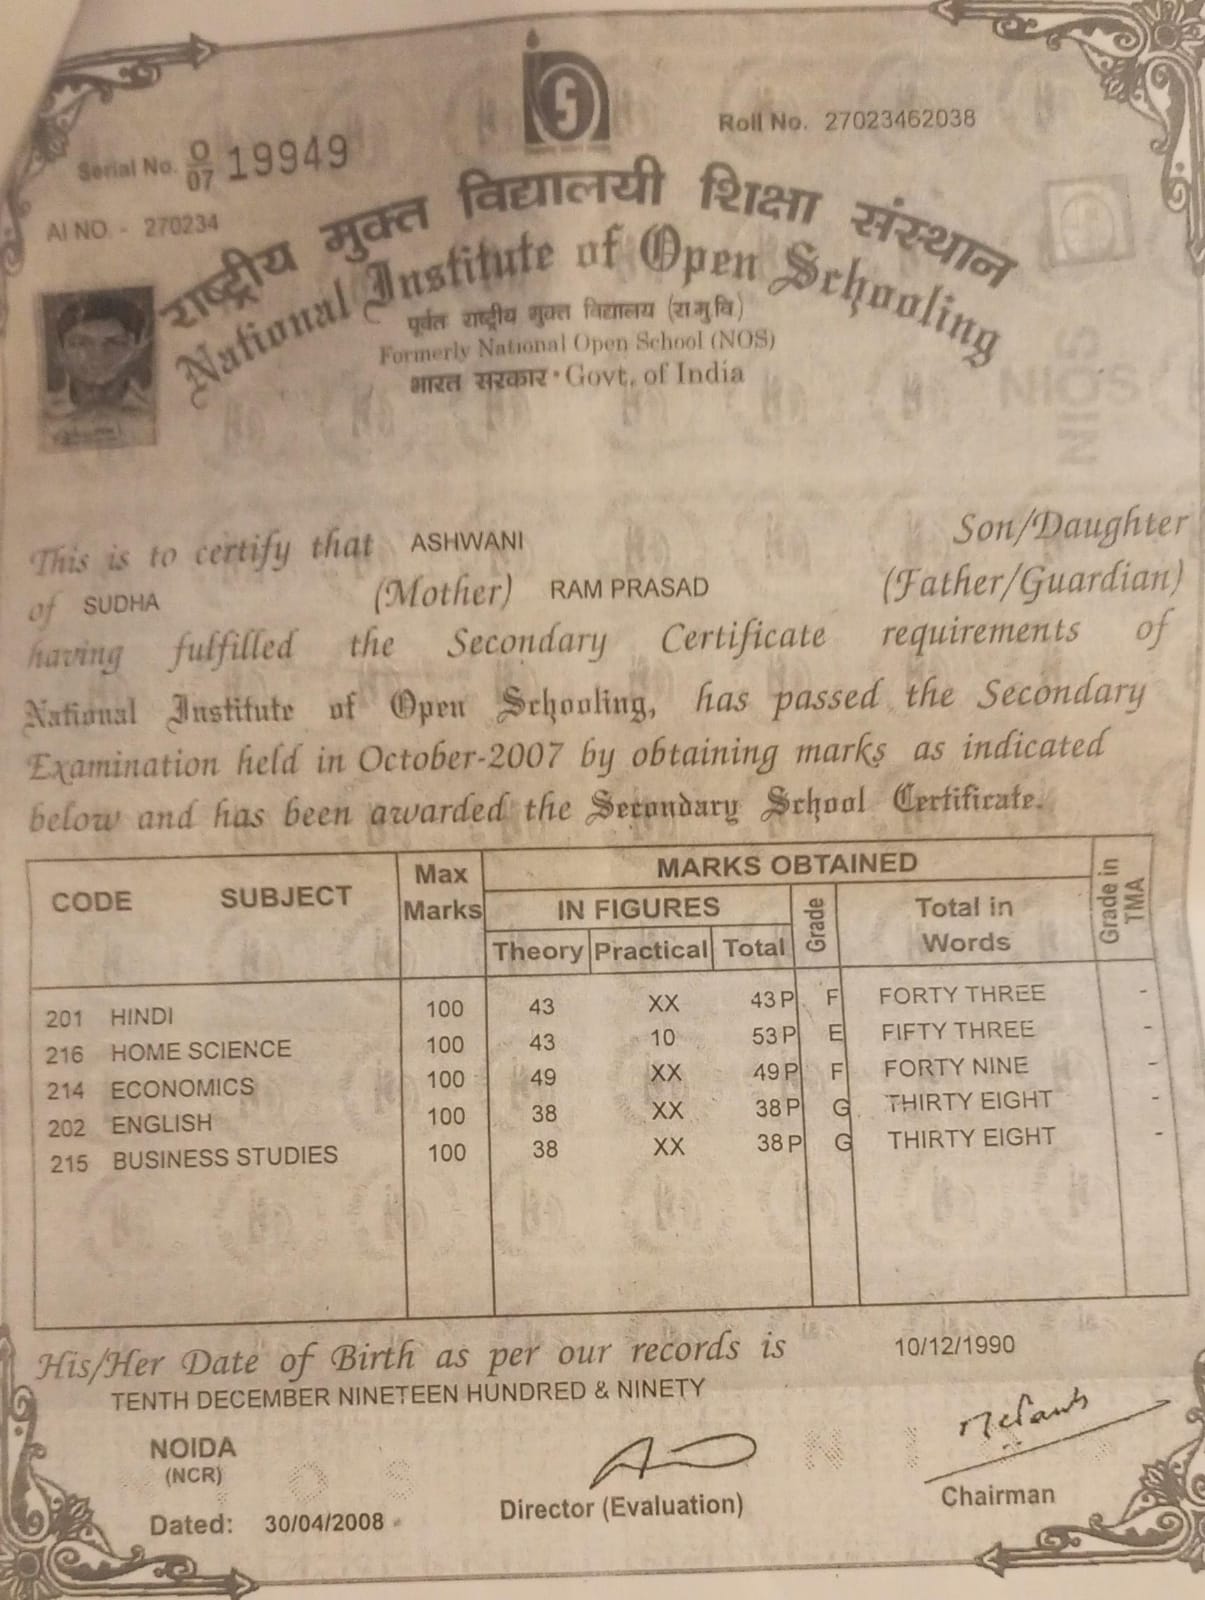 Roll No. 27023462038
Serial No. O/07 19949
AI NO - 270234
राष्ट्रीय मुक्त विद्यालयी शिक्षा संस्थान
National Institute of Open Schooling
पूर्वतः राष्ट्रीय मुक्त विद्यालय (रा मु वि)
Formerly National Open School (NOS)
भारत सरकार • Govt. of India
NIOS
NIOS
This is to certify that ASHWANI Son/Daughter
of SUDHA (Mother) RAM PRASAD (Father/Guardian)
having fulfilled the Secondary Certificate requirements of
National Institute of Open Schooling, has passed the Secondary
Examination held in October-2007 by obtaining marks as indicated
below and has been awarded the Secondary School Certificate.
CODE SUBJECT Max Marks MARKS OBTAINED Grade in TMA
IN FIGURES Grade Total in Words
Theory Practical Total
201 HINDI 100 43 XX 43 P F FORTY THREE -
216 HOME SCIENCE 100 43 10 53 P E FIFTY THREE -
214 ECONOMICS 100 49 XX 49 P F FORTY NINE -
202 ENGLISH 100 38 XX 38 P G THIRTY EIGHT -
215 BUSINESS STUDIES 100 38 XX 38 P G THIRTY EIGHT -
His/Her Date of Birth as per our records is 10/12/1990
TENTH DECEMBER NINETEEN HUNDRED & NINETY
NOIDA
(NCR)
Dated: 30/04/2008
Director (Evaluation)
Chairman